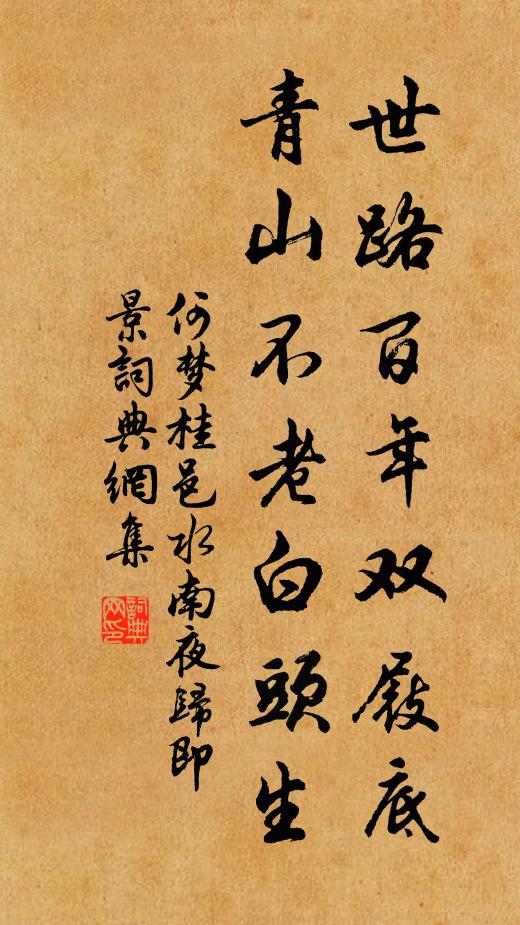 世路百年双屐底
青山不老白頭生
何梦桂邑水南夜歸即
景詞典網集
詞典
网印